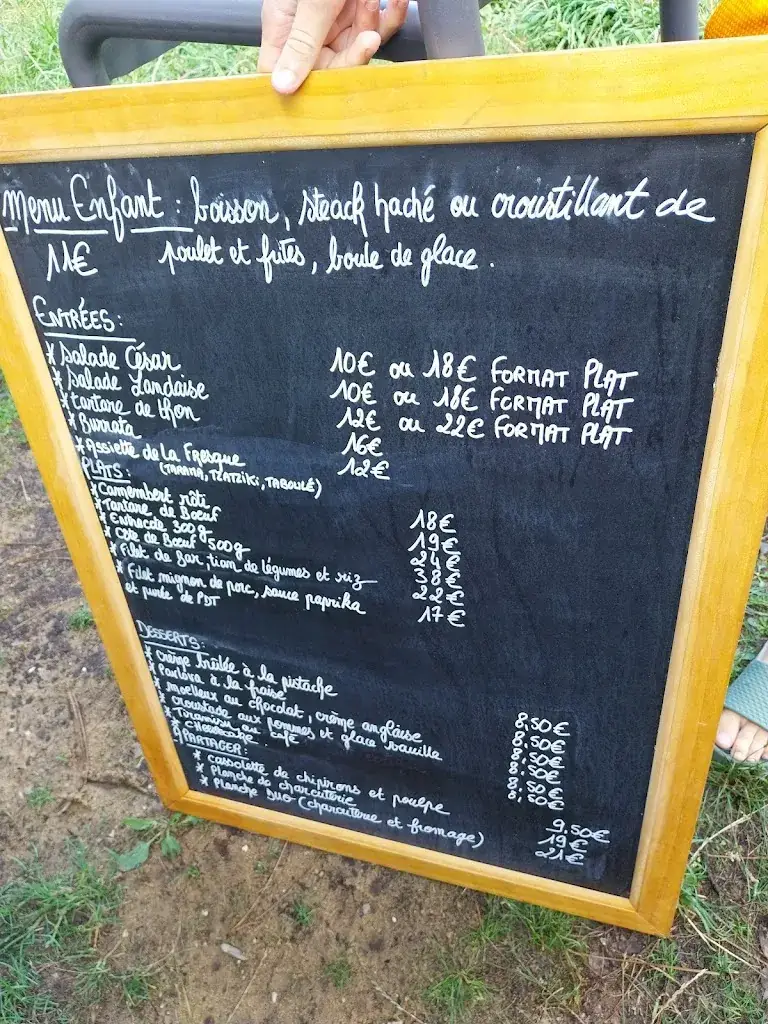 Menu Enfant : boisson, steack haché ou croustillant de
11€ poulet et frites, boule de glace.
ENTRÉES :
* Salade César 10€ ou 18€ FORMAT PLAT
* Salade Landaise 10€ ou 18€ FORMAT PLAT
* tartare de thon 12€ ou 22€ FORMAT PLAT
* Burrata 16€
* Assiette de La Fresque 12€
(TARAMA, TZATZIKI, TABOULÉ)
PLATS :
* Camembert rôti 18€
* Tartare de Boeuf 19€
* Entrecote 300g 24€
* Côte de Boeuf 500g 38€
* Filet de Bar, tian de légumes et riz 22€
* Filet mignon de porc, sauce paprika 17€
et purée de PDT
DESSERTS :
* crème brûlée à la pistache 8,50€
* Pavlova à la fraise 8,50€
* moelleux au chocolat, crème anglaise 8,50€
* croustade aux pommes et glace vanille 8,50€
* Tiramisu au café 8,50€
* cheesecake 8,50€
A PARTAGER :
* cassolette de chipirons et poulpe 9,50€
* Planche de charcuterie 19€
* Planche duo (charcuterie et fromage) 21€